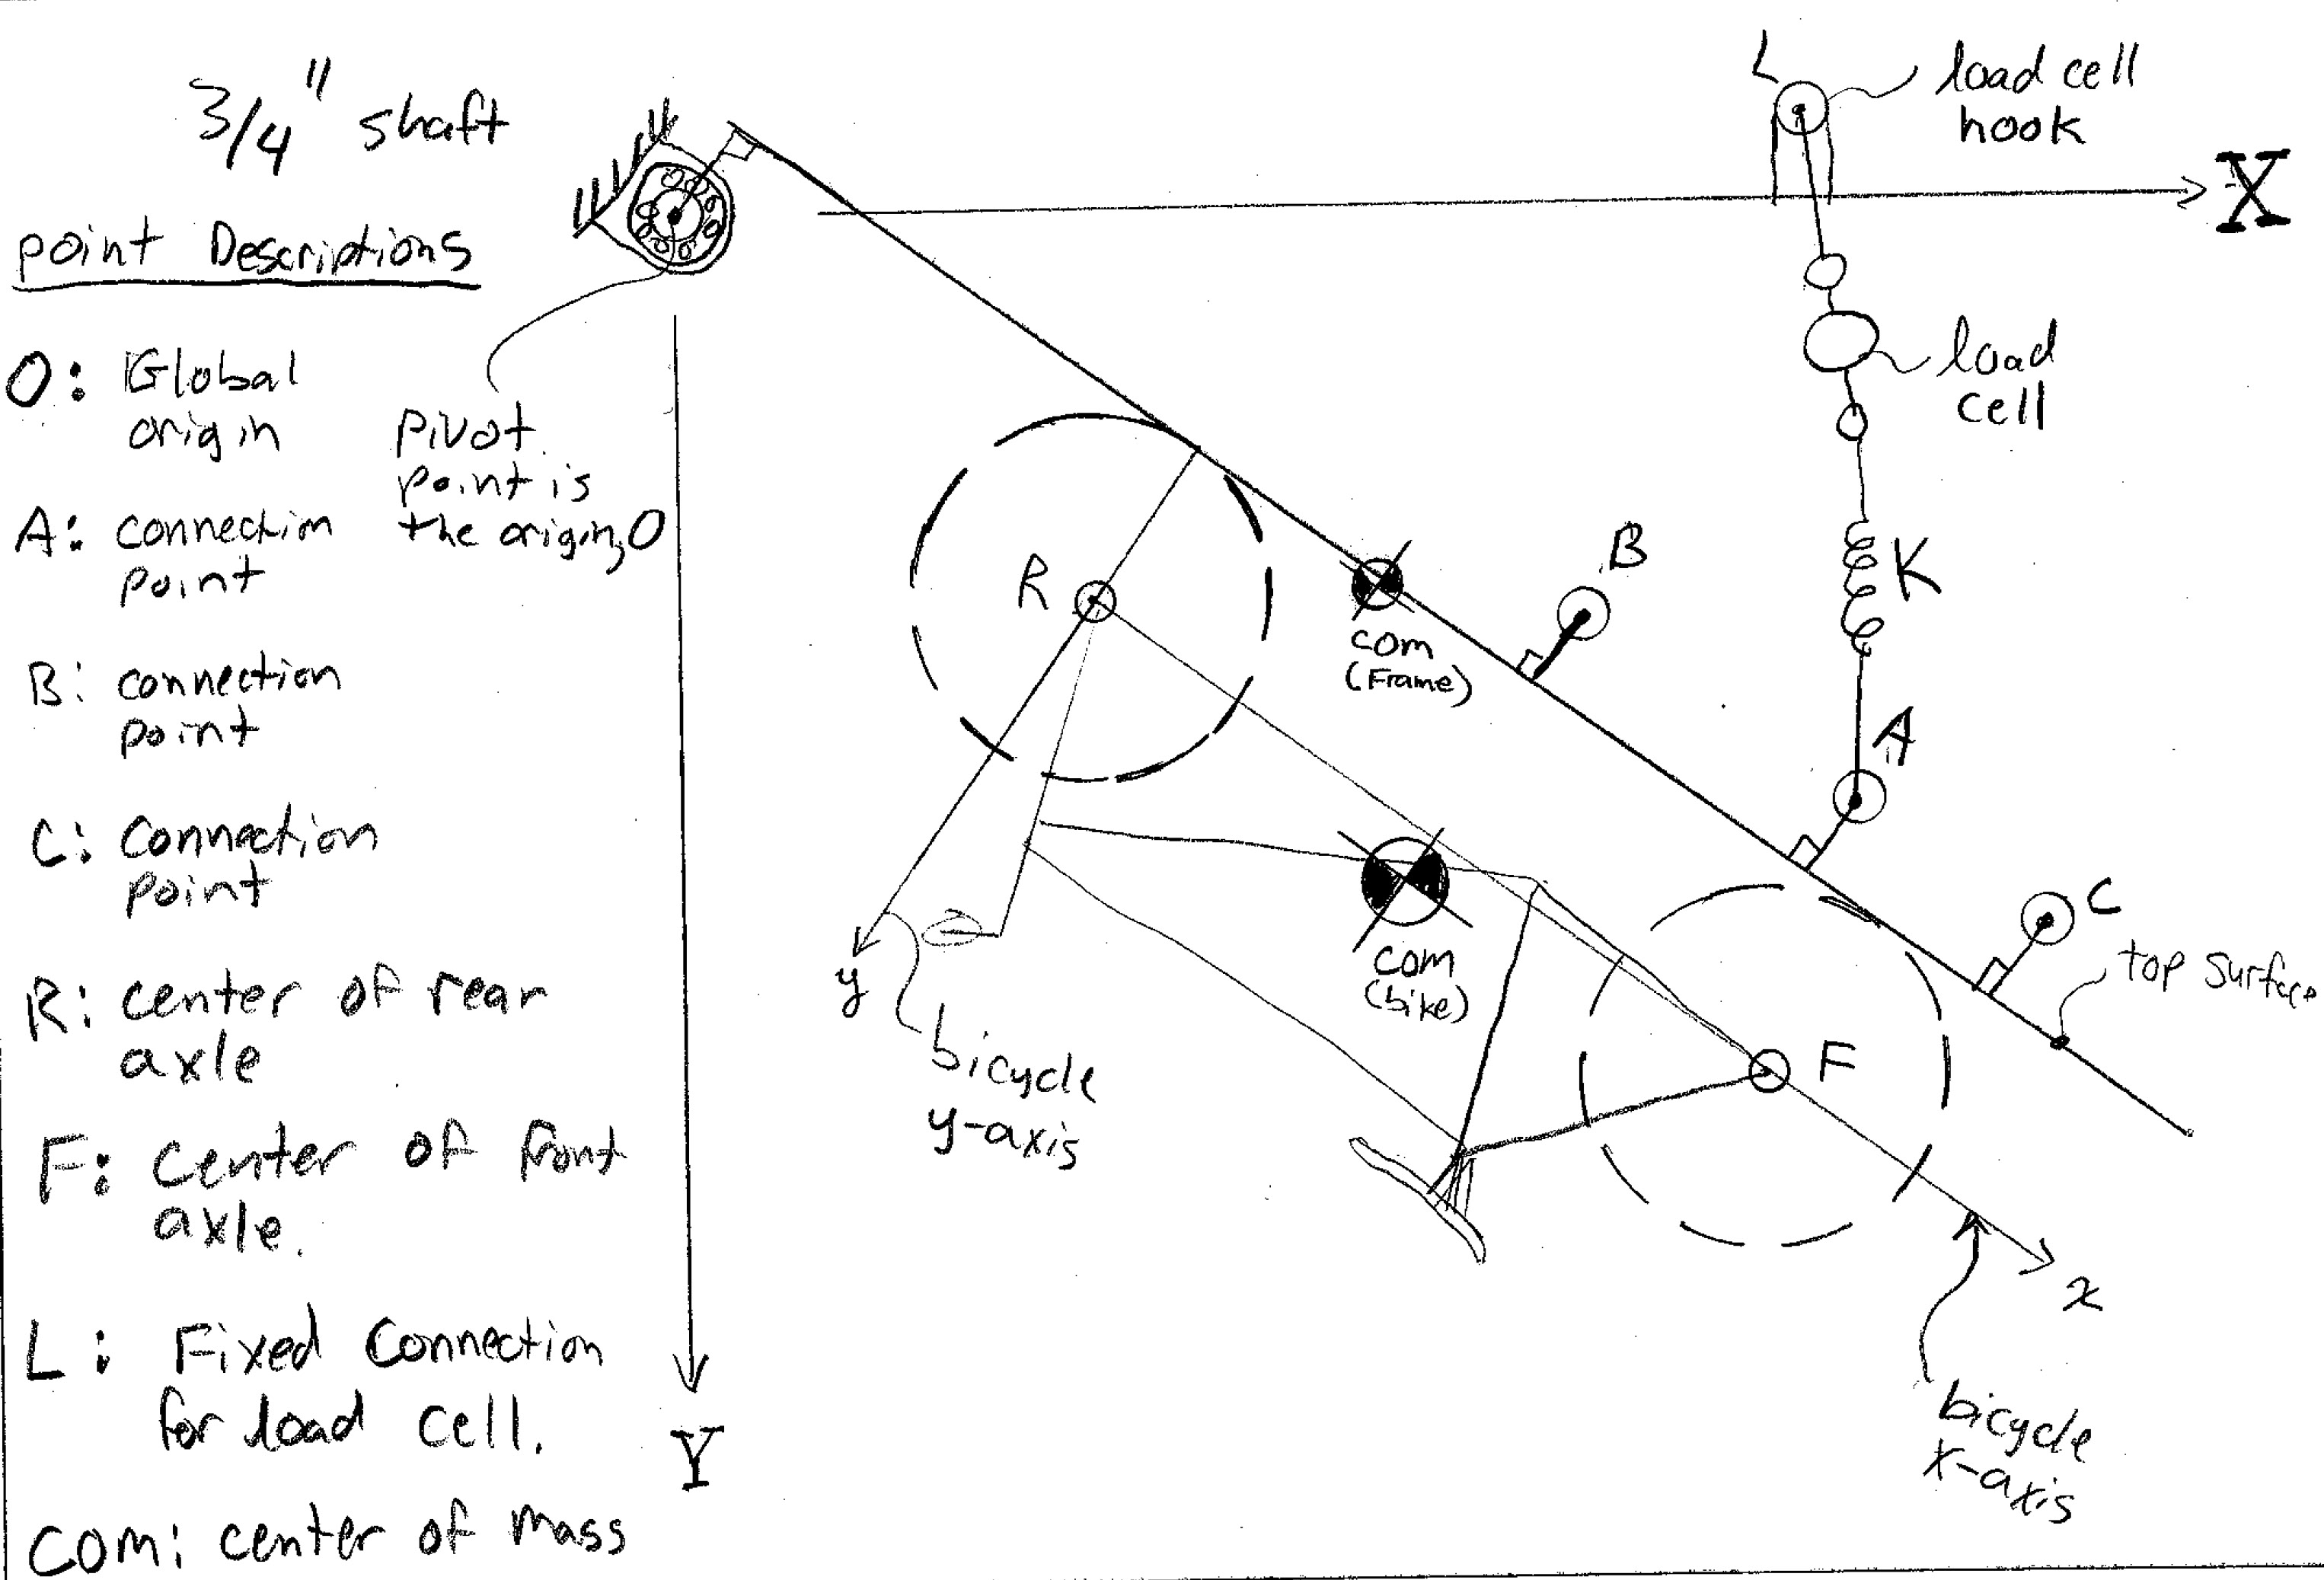 3/4" shaft
point Descriptions
O: Global
origin
A: connection
point
B: connection
point
C: Connection
point
R: center of rear
axle
F: center of front
axle.
L: Fixed Connection
for load cell.
COM: center of mass
pivot
point is
the origin, O
L
load cell
hook
X
load
cell
K
A
B
C
top surface
R
com
(Frame)
com
(bike)
F
y
bicycle
y-axis
x
bicycle
x-axis
Y